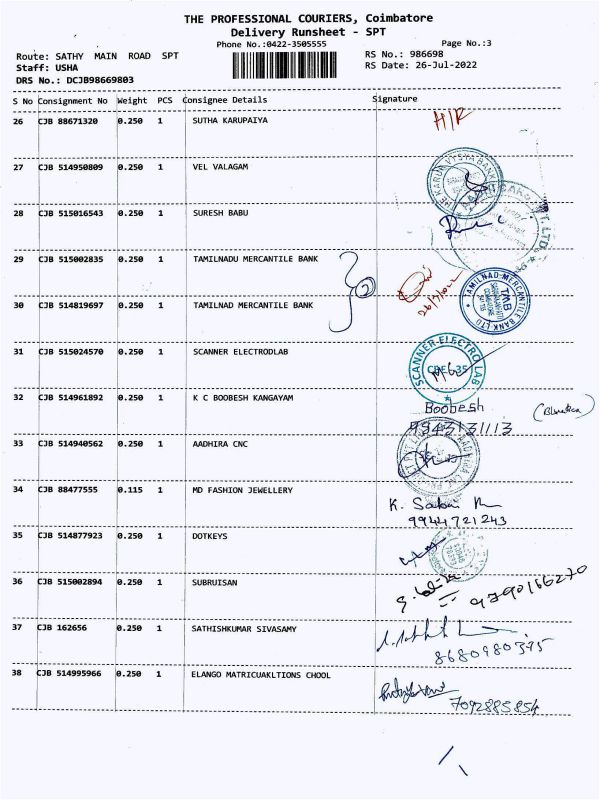 THE PROFESSIONAL COURIERS, Coimbatore
Delivery Runsheet - SPT
Phone No.:0422-3505555
Page No.:3
Route: SATHY MAIN ROAD SPT
RS No.: 986698
Staff: USHA
RS Date: 26-Jul-2022
DRS No.: DCJB98669803
S No Consignment No Weight PCS Consignee Details Signature
26 CJB 88671320 0.250 1 SUTHA KARUPAIYA H/R
27 CJB 514950809 0.250 1 VEL VALAGAM
28 CJB 515016543 0.250 1 SURESH BABU
29 CJB 515002835 0.250 1 TAMILNADU MERCANTILE BANK
30 CJB 514819697 0.250 1 TAMILNAD MERCANTILE BANK
2
26/7/2022
TAMILNAD MERCANTILE BANK LTD
TMB
31 CJB 515024570 0.250 1 SCANNER ELECTRODLAB
SCANNER ELECTRO LAB
CBE-35
32 CJB 514961892 0.250 1 K C BOOBESH KANGAYAM
Boobesh
9943131113
33 CJB 514940562 0.250 1 AADHIRA CNC
34 CJB 88477555 0.115 1 MD FASHION JEWELLERY
9944721243
35 CJB 514877923 0.250 1 DOTKEYS
36 CJB 515002894 0.250 1 SUBRUISAN
9790166270
37 CJB 162656 0.250 1 SATHISHKUMAR SIVASAMY
8680980395
38 CJB 514995966 0.250 1 ELANGO MATRICUAKLTIONS CHOOL
7092885854